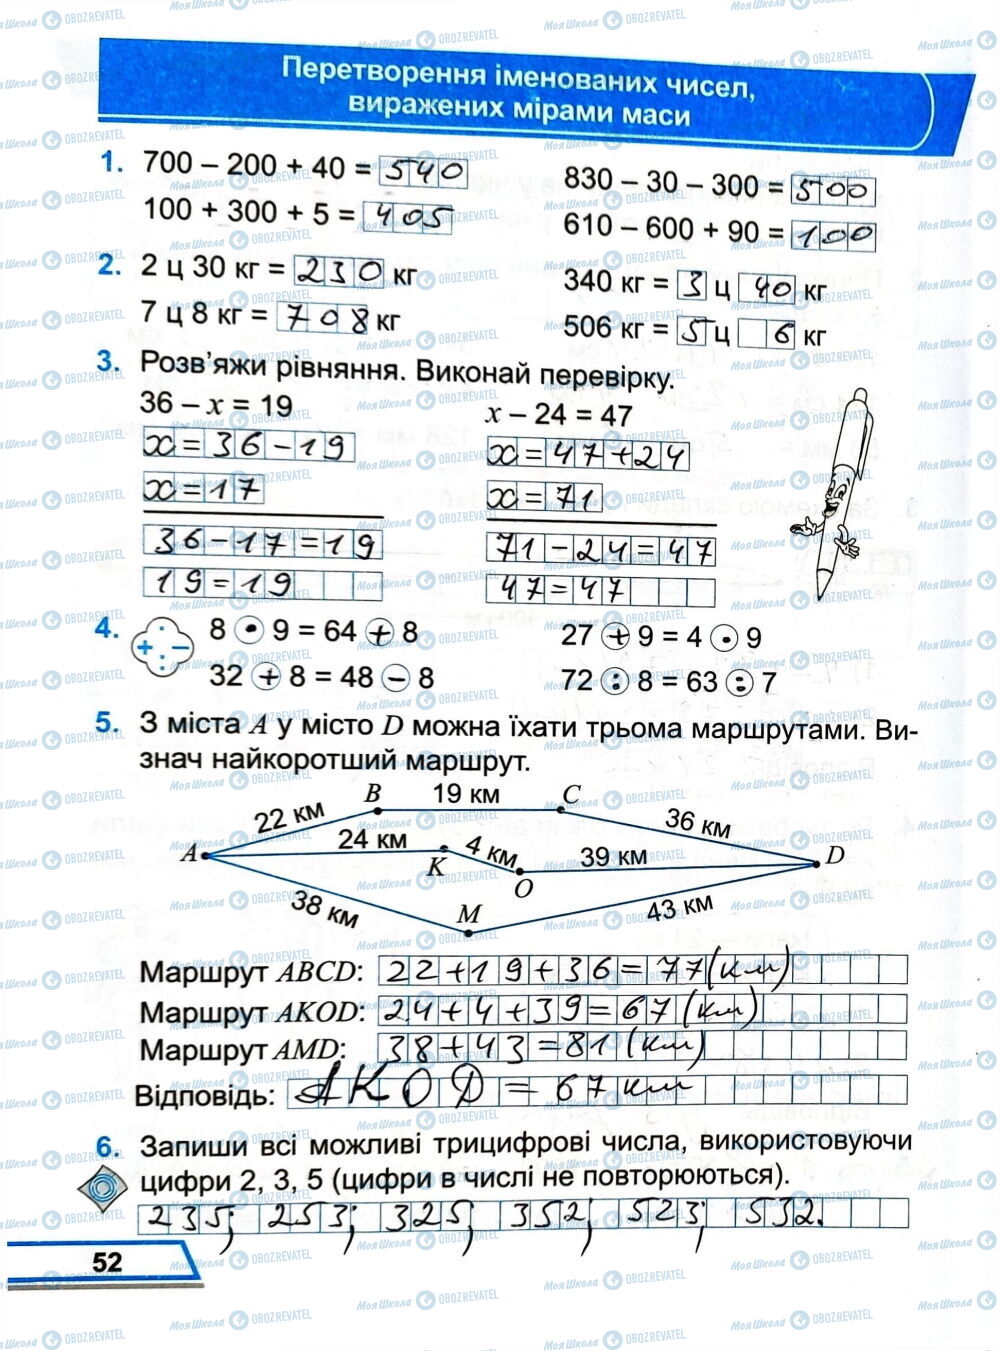 Перетворення іменованих чисел,
виражених мірами маси
1. 700 – 200 + 40 = 540
830 – 30 – 300 = 500
100 + 300 + 5 = 405
610 – 600 + 90 = 100
2. 2 ц 30 кг = 230 кг
340 кг = 3 ц 40 кг
7 ц 8 кг = 708 кг
506 кг = 5 ц 6 кг
3. Розв’яжи рівняння. Виконай перевірку.
36 – x = 19
x – 24 = 47
x = 36 – 19
x = 47 + 24
x = 17
x = 71
36 – 17 = 19
71 – 24 = 47
19 = 19
47 = 47
4. 8 • 9 = 64 + 8
27 + 9 = 4 • 9
32 + 8 = 48 – 8
72 : 8 = 63 : 7
5. З міста A у місто D можна їхати трьома маршрутами. Ви-
знач найкоротший маршрут.
B 19 км C
22 км
36 км
A 24 км K 4 км O 39 км D
38 км M 43 км
Маршрут ABCD: 22 + 19 + 36 = 77 (км)
Маршрут AKOD: 24 + 4 + 39 = 67 (км)
Маршрут AMD: 38 + 43 = 81 (км)
Відповідь: AKOD = 67 км
6. Запиши всі можливі трицифрові числа, використовуючи
цифри 2, 3, 5 (цифри в числі не повторюються).
235; 253; 325; 352; 523; 532.
52
МояШкола OBOZREVATEL